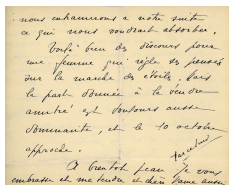 nous entraînerions à notre suite
ce qui nous voudrait absorber.
Voilà bien des discours pour
une femme qui règle ses pensées
sur la marche des étoiles. Mais
la part donnée à la tendre
amitié est toujours aussi
dominante, et le 10 octobre
approche.
A bientôt je vous
embrasse et me tendre et chère